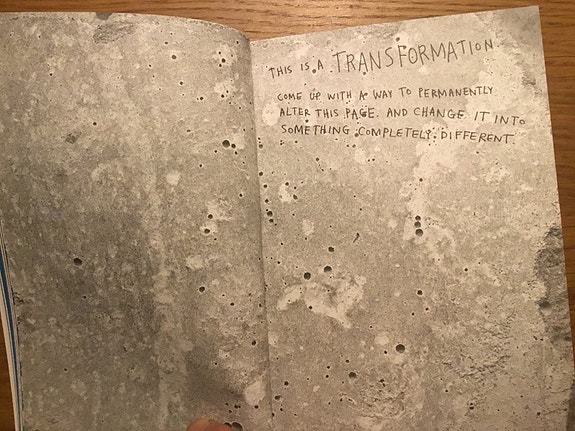 THIS IS A TRANSFORMATION.
COME UP WITH A WAY TO PERMANENTLY
ALTER THIS PAGE. AND CHANGE IT INTO
SOMETHING COMPLETELY DIFFERENT.